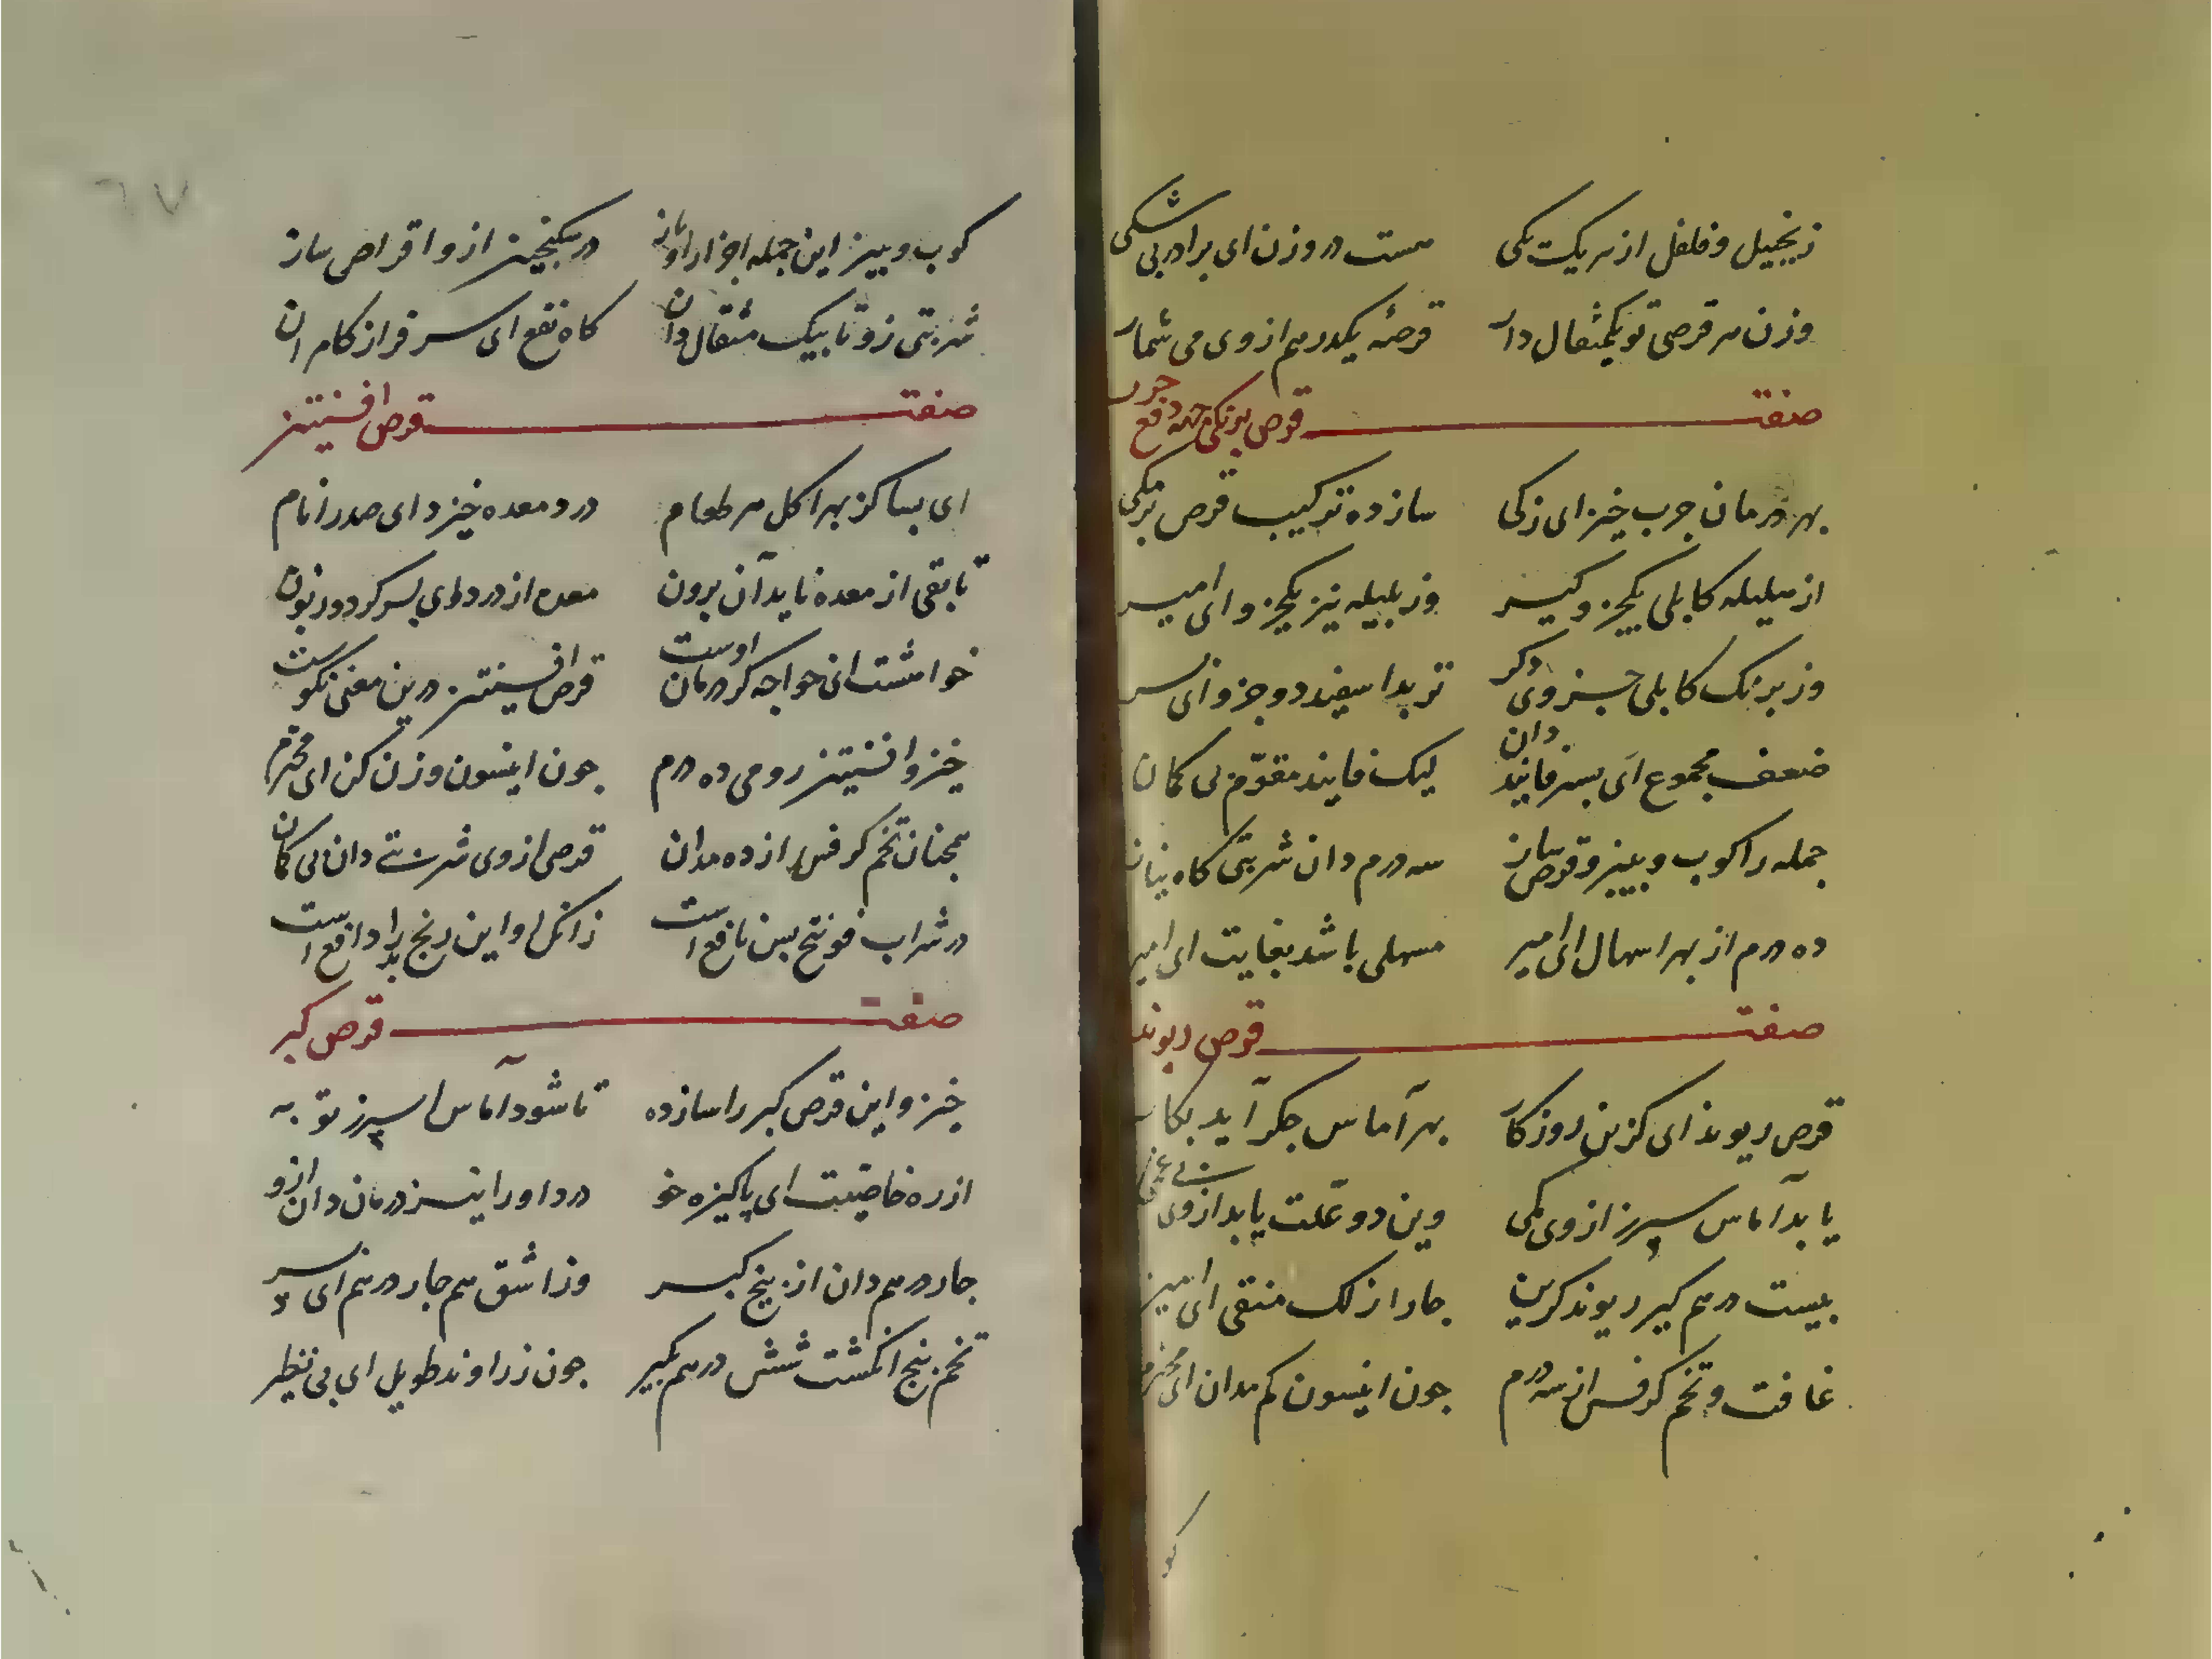 زنجبیل و فلفل از هریک یکی هست در وزن ای برادر بی شکی
وزن هر قرصی تو یکمثقال دار قرصهٔ یکدرهم از وی می شمار
صفت قرص برنکی جهة دفع جرب
بهر درمان جرب خیز ای زکی ساز ده ترکیب قرص برنکی
از هلیله کابلی یکجزو کیر وز بلیله نیز یکجزو ای امیر
وز برنک کابلی جزوی دکر تربد اسفید دو جزو ای پسر
ضعف مجموع ای پسر فانید دان لیک فانید مقوّم بی کمان
جمله را کوب و ببیز و قرص ساز سه درم دان شربتی کاه نیاز
ده درم از بهر اسهال ای امیر مسهلی باشد بغایت ای امیر
صفت قرص ریوند
قرص ریوند ای کزین روزکار بهر آماس جکر آید بکار
یابد آماس سپرز از وی کمی وین دو علّت یابد از وی بی غمی
بیست درهم کیر ریوند کزین جار از لک منقی ای امین
غافت و تخم کرفس از سه درم جون انیسون کم مدان ای محترم
کو
٦٧
کوب و بیز این جمله اجزا را و باز در سکنجبین ازو اقراص ساز
شربتی زو تا بیک مثقال دان کاه نفع ای سرفراز کامران
صفت قرص افسنتین
ای بسا کز بهر اکل هر طعام درد معده خیزد ای صدر انام
تا بقی از معده ناید آن برون معده از درد وی بس کردد زبون
خواهشت ای خواجه کر درمان اوست قرص افسنتین درین معنی نکوست
خیز و افسنتین رومی ده درم جون انیسون وزن کن ای محترم
همجنان تخم کرفس از ده مدان قرصی از وی شربتی دان بی کمان
در شراب فوتنج بس نافع است زانکه او این رنج بد را دافع است
صفت قرص کبر
خیز و این قرص کبر را ساز ده تا شود آماس اسپرز تو به
از ره خاصیت ای پاکیزه خو درد او را نیز درمان دان ازو
جار درهم دان از بیخ کبر وز اشق هم جار درهم ای پسر
تخم پنج انکشت شش درهم بکیر جون زراوند طویل ای بی نظیر